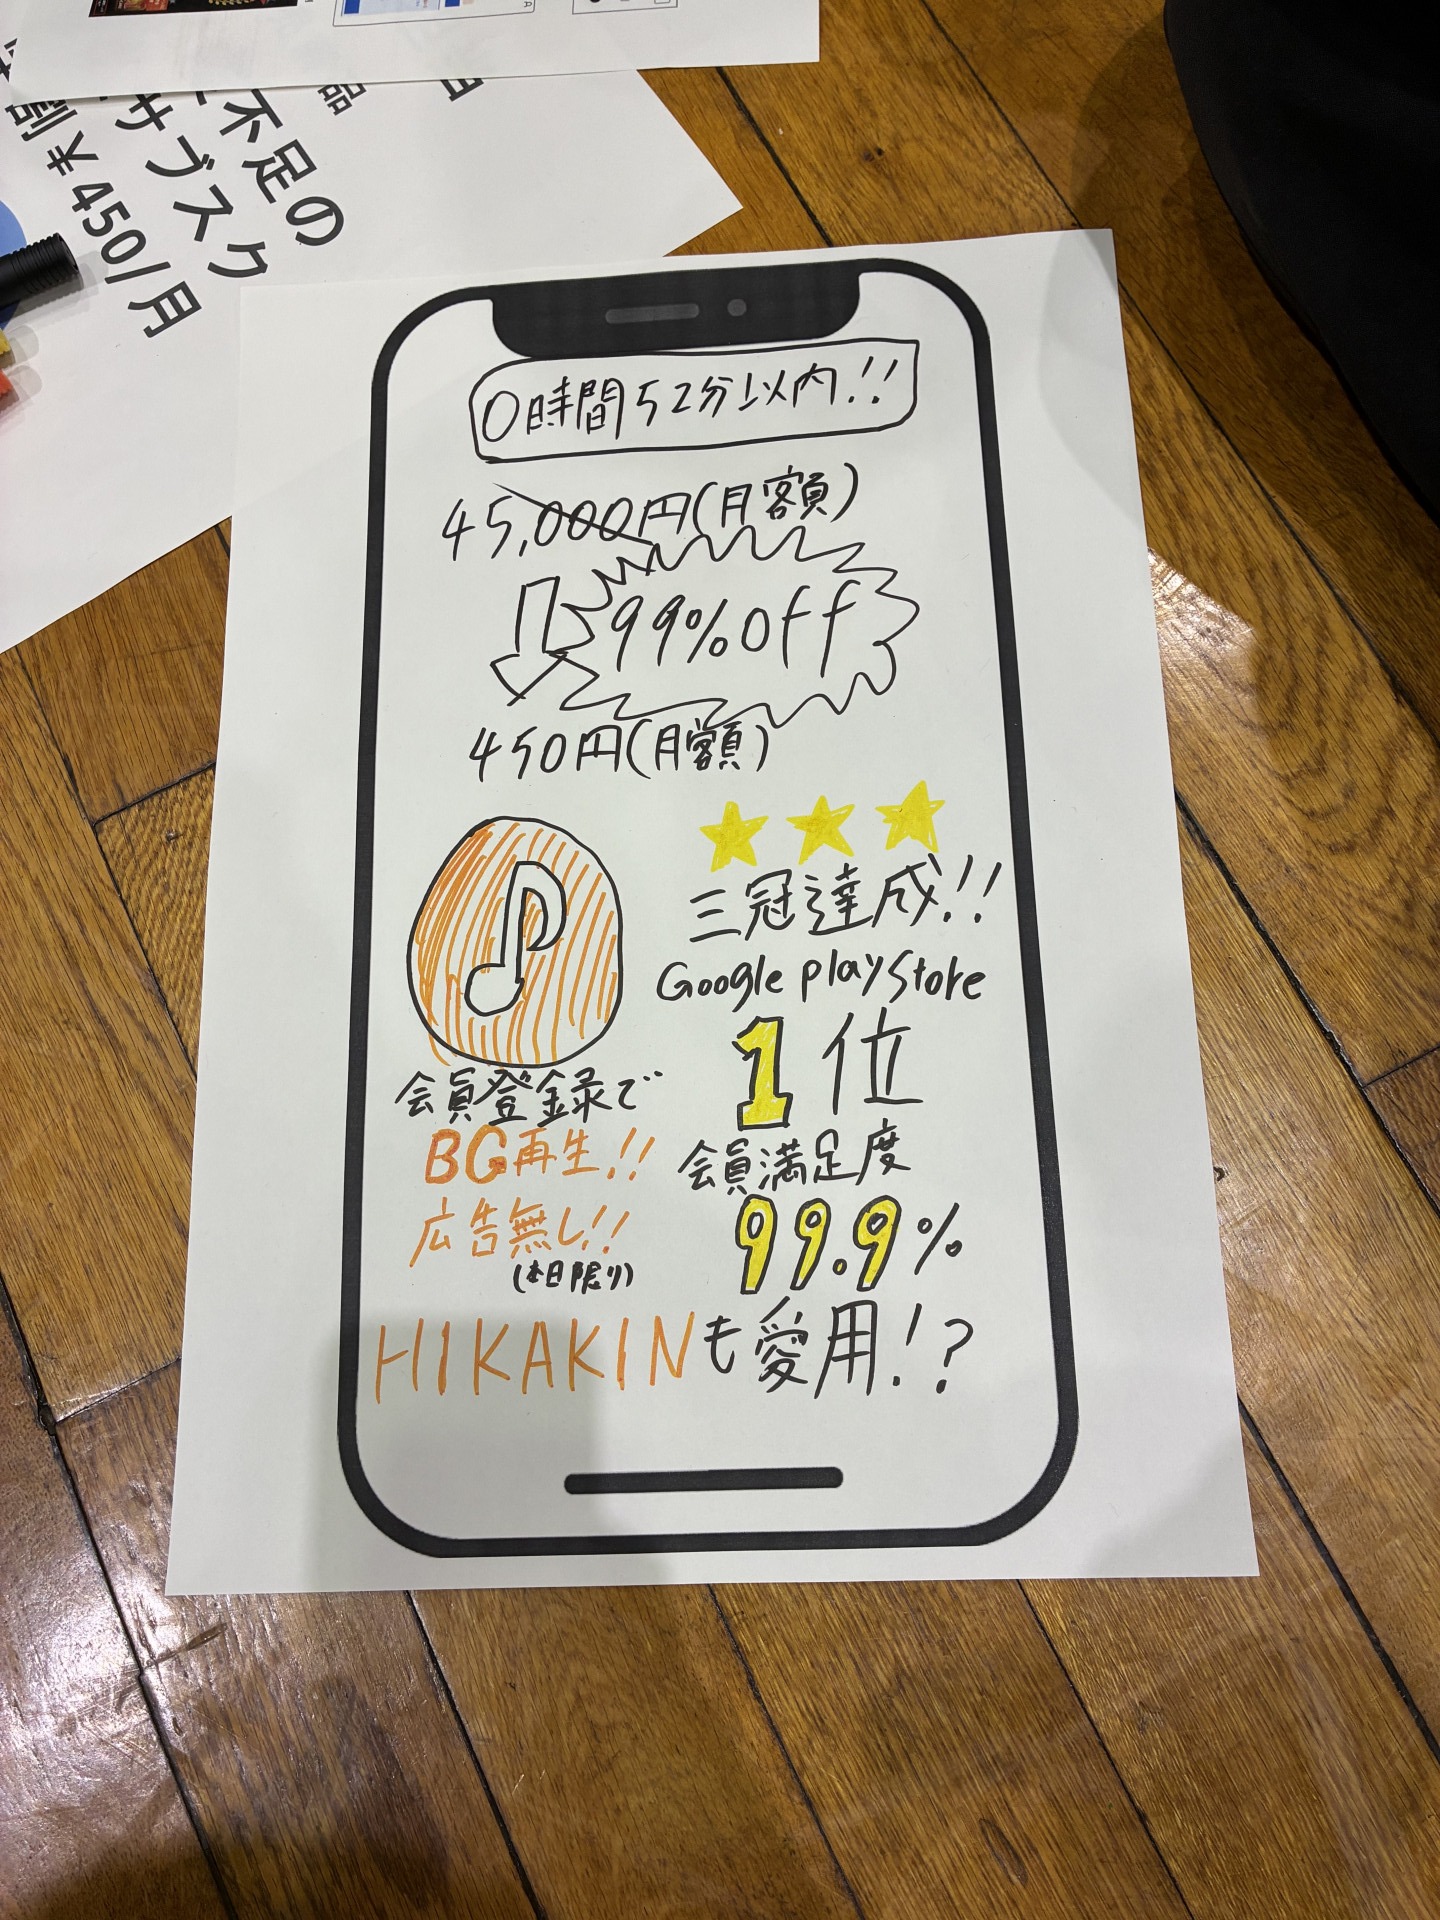 不足の
サブスク
割￥450/月
品
0時間52分以内!!
45,000円(月額)
99%off
450円(月額)
三冠達成!!
Google playstore
1位
会員満足度
99.9%
会員登録で
BG再生!!
広告無し!!
(本日限り)
HIKAKINも愛用!?